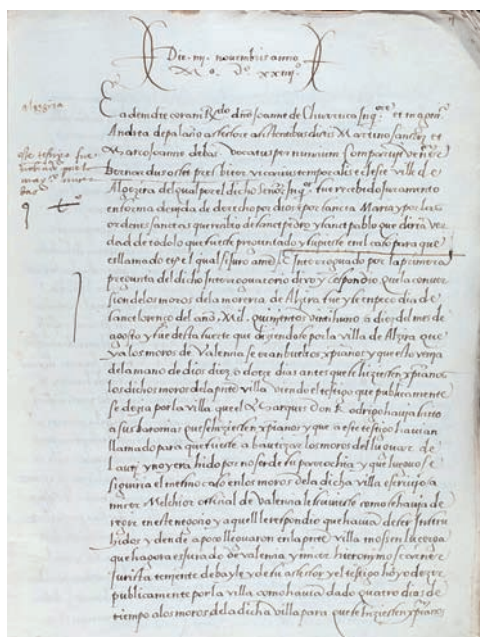 Die. iiij. novembris anno
M.º D.º xxiiijº
Eadem die coram Rdo dño Joanne de Churruca Inqore et mag
Andrea de palacio assessore assistentibus dictis Martino sanchez et
Marco Joanne de bas. vocatus per nuncium comparuit vener
bernardus presbiter vicarius temporal es de la dicha villa de
Algezira del qual por el dicho Señor Inqor fue recebido juramento
en forma devida de derecho por dios y por sancta Maria y por las
ordenes sanctas que recibio de sanct pedro y sanct pablo que diria ver
dad de todo lo que fuesse preguntado y supiesse en el caso para que
es llamado el qual Interroguado por la primera
pregunta del dicho Interroguatorio dixo y respondio que la conver
sion de los moros de la moreria de Alzira fue y se enpeço dia de
sanct lorenço del año Mil. quinientos vintihuno a diez del mes de
agosto y fue desta suerte que deziendose por la villa de Alzira que
ya los moros de Valencia se eran bueltos xpianos y que ello venia
de la mano de dios diez o dotze dias antes que se hiziessen xpianos
los dichos moros de la pnte villa viendo el testigo que publicamente
se dezia por la villa que el Marques Don Rodrigo havia
a sus que se hiziessen xpianos y que a este testigo havian
llamado para que fuesse a bautizar los moros del luguar de
y no yera hido por no ser de su parrochia y que luego se
siguiria el mesmo caso en los moros de la dicha villa escrivio a
micer Melchior official de valencia le scriviesse como se havia de
regir en este negocio y aquell le respondio que havia de ser Instru
hidos y dende a poco llegaron en la pnte villa mossen
que hagora es jurado de valencia y micer hieronymo
Jurista teniente de bayle y de su assessor y el testigo hoyo dezir
publicamente por la villa como havia dado quatro dias de
tiempo a los moros de la dicha villa para que se hiziessen xpianos
Algezira
este testigo fue